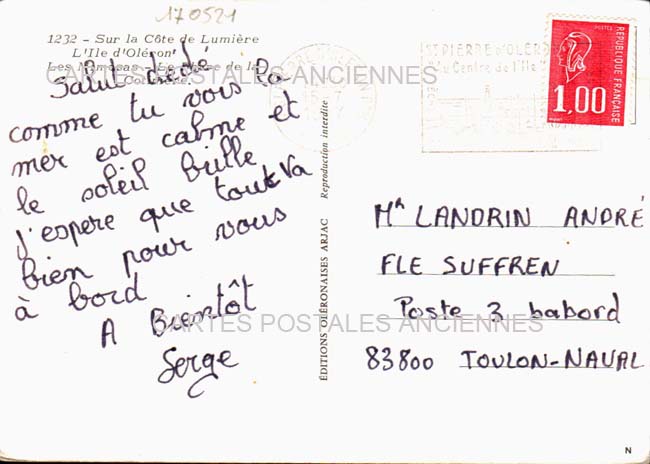 170521
1232 - Sur la Côte de Lumière
L'Ile d'Oléron
Les Mimosas - Le Phare de la
CARTES POSTALES ANCIENNES
Salut dédé
comme tu vois la
mer est calme et
le soleil brille
j'espere que tout va
bien pour vous
à bord
A Bientôt
Serge
CARTES POSTALES ANCIENNES
ÉDITIONS OLÉRONAISES ARJAC Reproduction interdite
ST PIERRE D'OLERON
Centre de l'Ile
POSTES
RÉPUBLIQUE FRANÇAISE
1,00
Mr LANDRIN ANDRÉ
FLE SUFFREN
Poste 3 babord
83800 TOULON-NAVAL
N